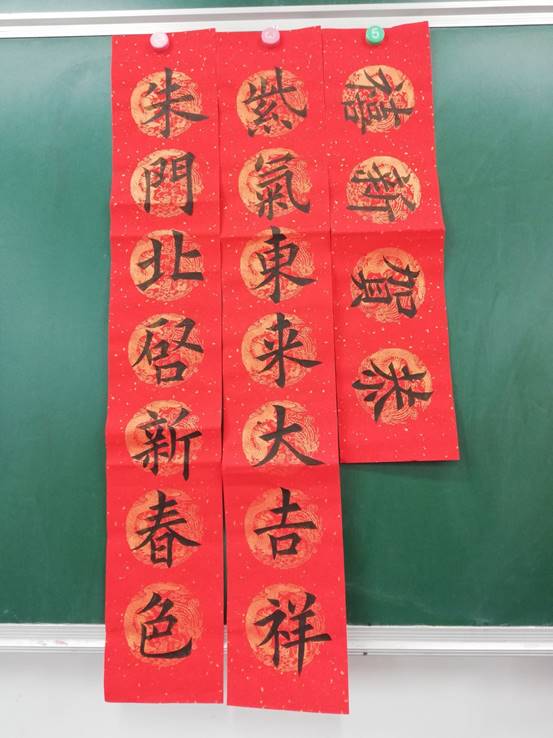 恭賀新禧
紫氣東来大吉祥
朱門北启新春色
5